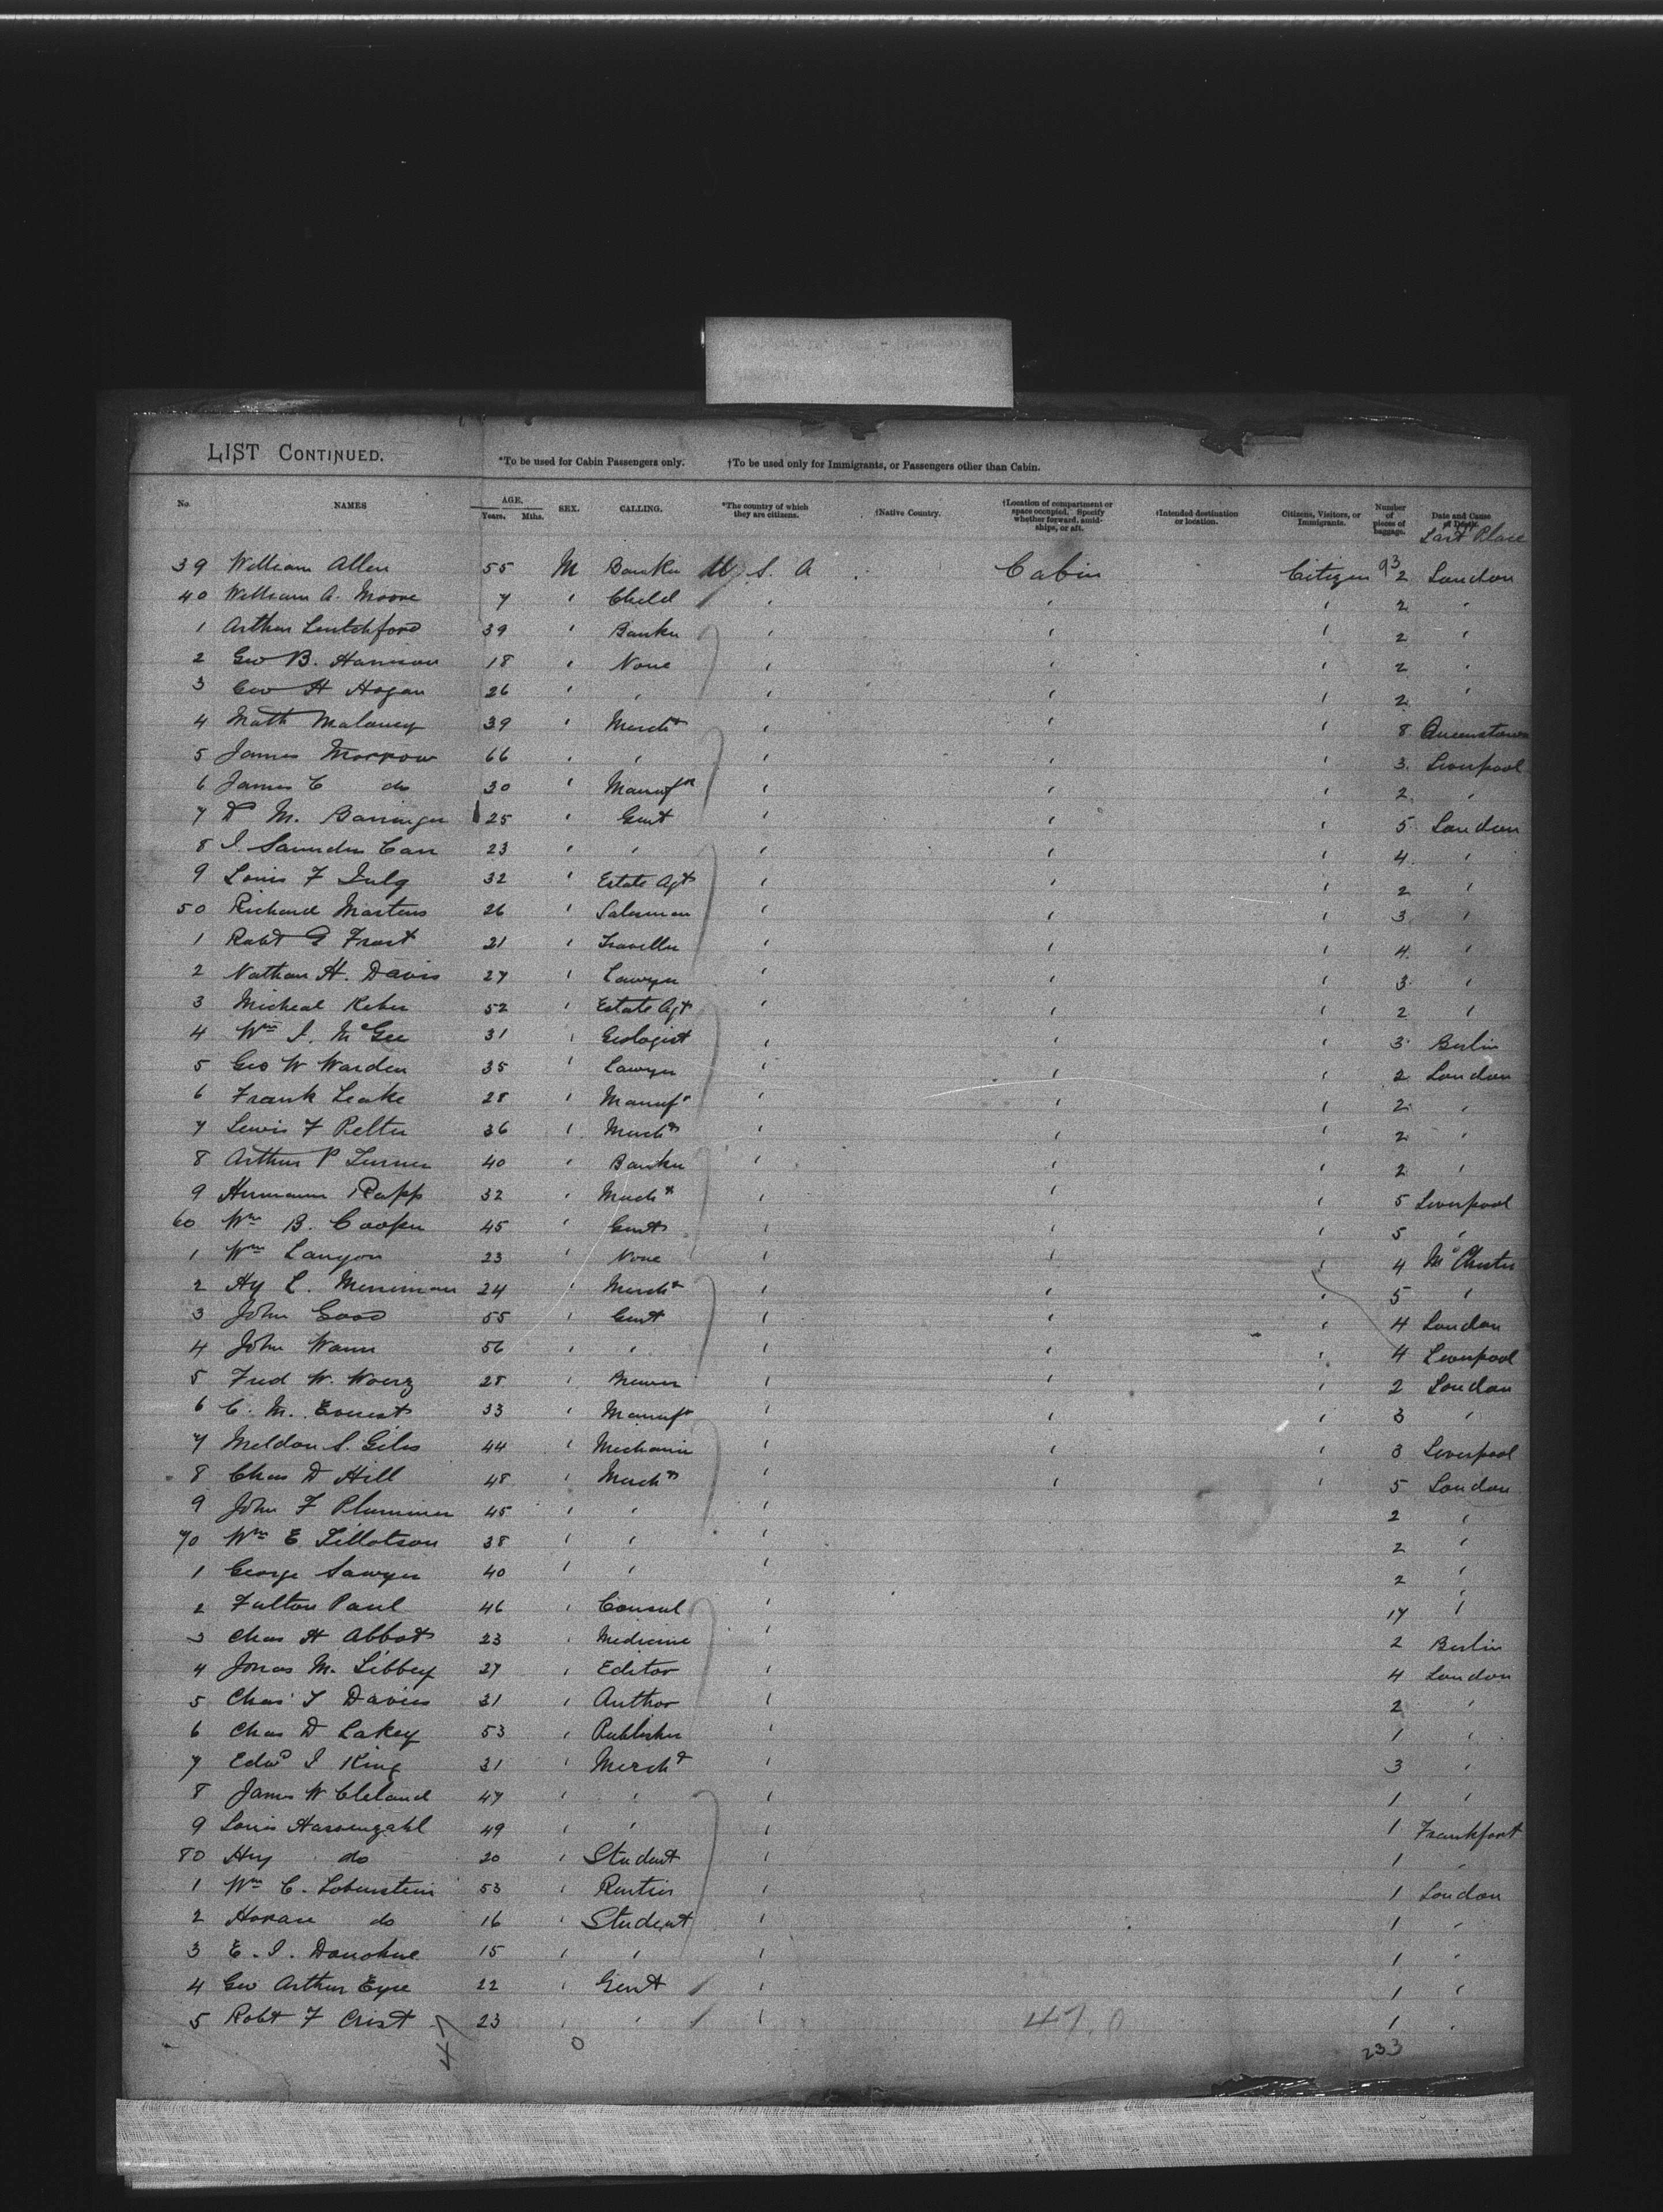 LIST CONTINUED.
*To be used for Cabin Passengers only. †To be used only for Immigrants, or Passengers other than Cabin.
No. NAMES AGE. Years. Mths. SEX. CALLING. *The country of which they are citizens. †Native Country. †Location of compartment or space occupied. Specify whether forward, amidships, or aft. †Intended destination or location. Citizens, Visitors, or Immigrants. Number of pieces of baggage. Date and Cause of Death.
Last Place
39 William Allen 55 M Banker U. S. A Cabin Citizen 93 2 London
40 William A. Moore 7 " Child " " " 2 "
1 Arthur 39 " Banker " " " 2 "
2 Geo B. Harrison 18 " None " " " 2 "
3 Geo H Hogan 26 " " " " " 2 "
4 Math Malaney 39 " Mercht " " " 8 Queenstown
5 James Morrow 66 " " " " " 3 Liverpool
6 James C do 30 " Manufr " " " 2 "
7 D M. Barringer 25 " Gent " " " 5 London
8 J. Saunders Carr 23 " " " " " 4 "
9 Louis F 32 " Estate Agt " " " 2 "
50 Richard Martens 26 " Salesman " " " 3 "
1 Robt G Frost 21 " Traveller " " " 4 "
2 Nathan H. Davis 27 " Lawyer " " " 3 "
3 Micheal Reber 52 " Estate Agt " " " 2 "
4 Wm J. McGee 31 " Geologist " " " 3 Berlin
5 Geo W Warden 35 " Lawyer " " " 2 London
6 Frank Leake 28 " Manufr " " " 2 "
7 Lewis F Pelter 36 " Mercht " " " 2 "
8 Arthur P Turner 40 " Banker " " " 2 "
9 Hermann Rapp 32 " Mercht " " " 5 Liverpool
60 Wm B. Cooper 45 " Gent " " " 5 "
1 Wm Langon 23 " None " " " 4 M'Chester
2 Hy L. Merriman 24 " Mercht " " " 5 "
3 John Good 55 " Gent " " " 4 London
4 John Wann 56 " " " " " 4 Liverpool
5 Fred W. Woerz 28 " Brewer " " " 2 London
6 C. M. Everest 33 " Manufr " " " 3 "
7 Meldon S. Giles 44 " Mechanic " " " 3 Liverpool
8 Chas D Hill 48 " Mercht " " " 5 London
9 John F Plummer 45 " " " 2 "
70 Wm E Tillotson 38 " " " 2 "
1 George Sawyer 40 " " " 2 "
2 Fulton Paul 46 " Consul " 17 "
3 Chas H Abbot 23 " Medicine " 2 Berlin
4 Jonas M. Libbey 27 " Editor " 4 London
5 Chas T Davies 31 " Author " 2 "
6 Chas D Lakey 53 " Publisher " 1 "
7 Edwd J King 31 " Mercht " 3 "
8 James W Cleland 47 " " " 1 "
9 Louis 49 " " " 1 Frankfort
80 Hy do 20 " Student " 1 "
1 Wm C. Lobenstein 53 " Rentier " 1 London
2 Horace do 16 " Student " 1 "
3 E. J. Donohue 15 " " " 1 "
4 Geo Arthur Eyre 22 " Gent " 1 "
5 Robt F Crist 23 " " " 1 "
47 0 47.0 233